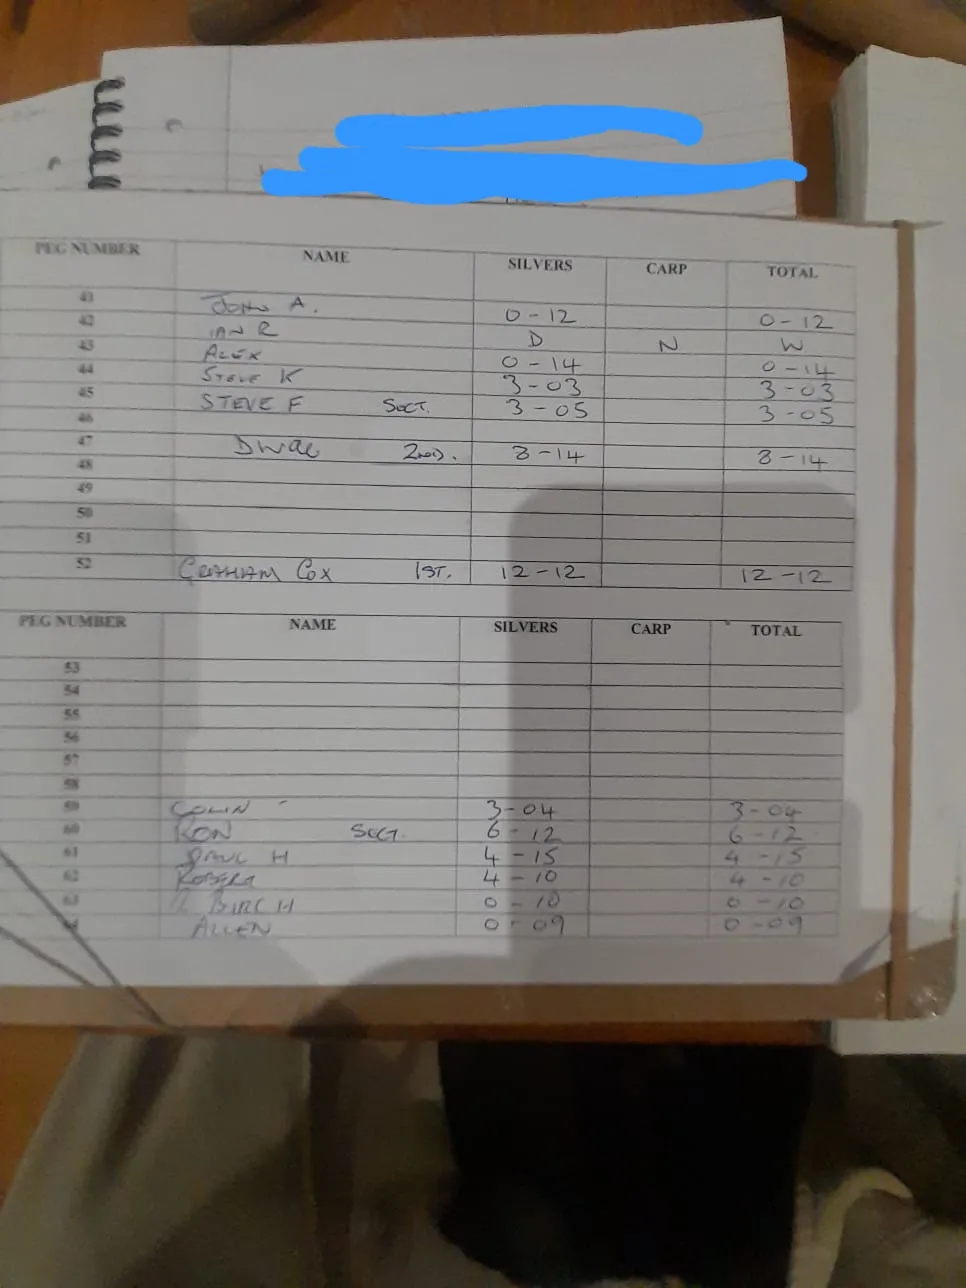 PEG NUMBER NAME SILVERS CARP TOTAL
41 JOHN A. 0-12 0-12
42 IAN R D N W
43 ALEX 0-14 0-14
44 STEVE K 3-03 3-03
45 STEVE F SECT. 3-05 3-05
46
47 DWAL 2ND. 8-14 8-14
48
49
50
51
52 GRAHAM COX 1ST. 12-12 12-12
PEG NUMBER NAME SILVERS CARP TOTAL
53
54
55
56
57
58
59 COLIN 3-04 3-04
60 RON SECT. 6-12 6-12
61 PAUL H 4-15 4-15
62 ROBERT 4-10 4-10
63 BIRCH 0-10 0-10
ALLEN 0-09 0-09